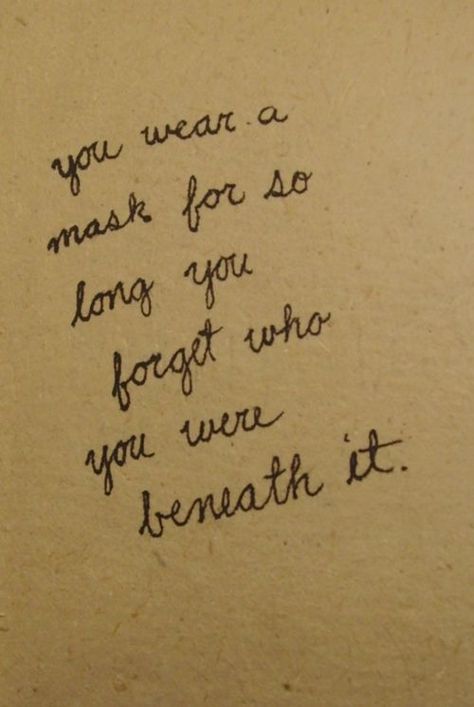 you wear a
mask for so
long you
forget who
you were
beneath it.